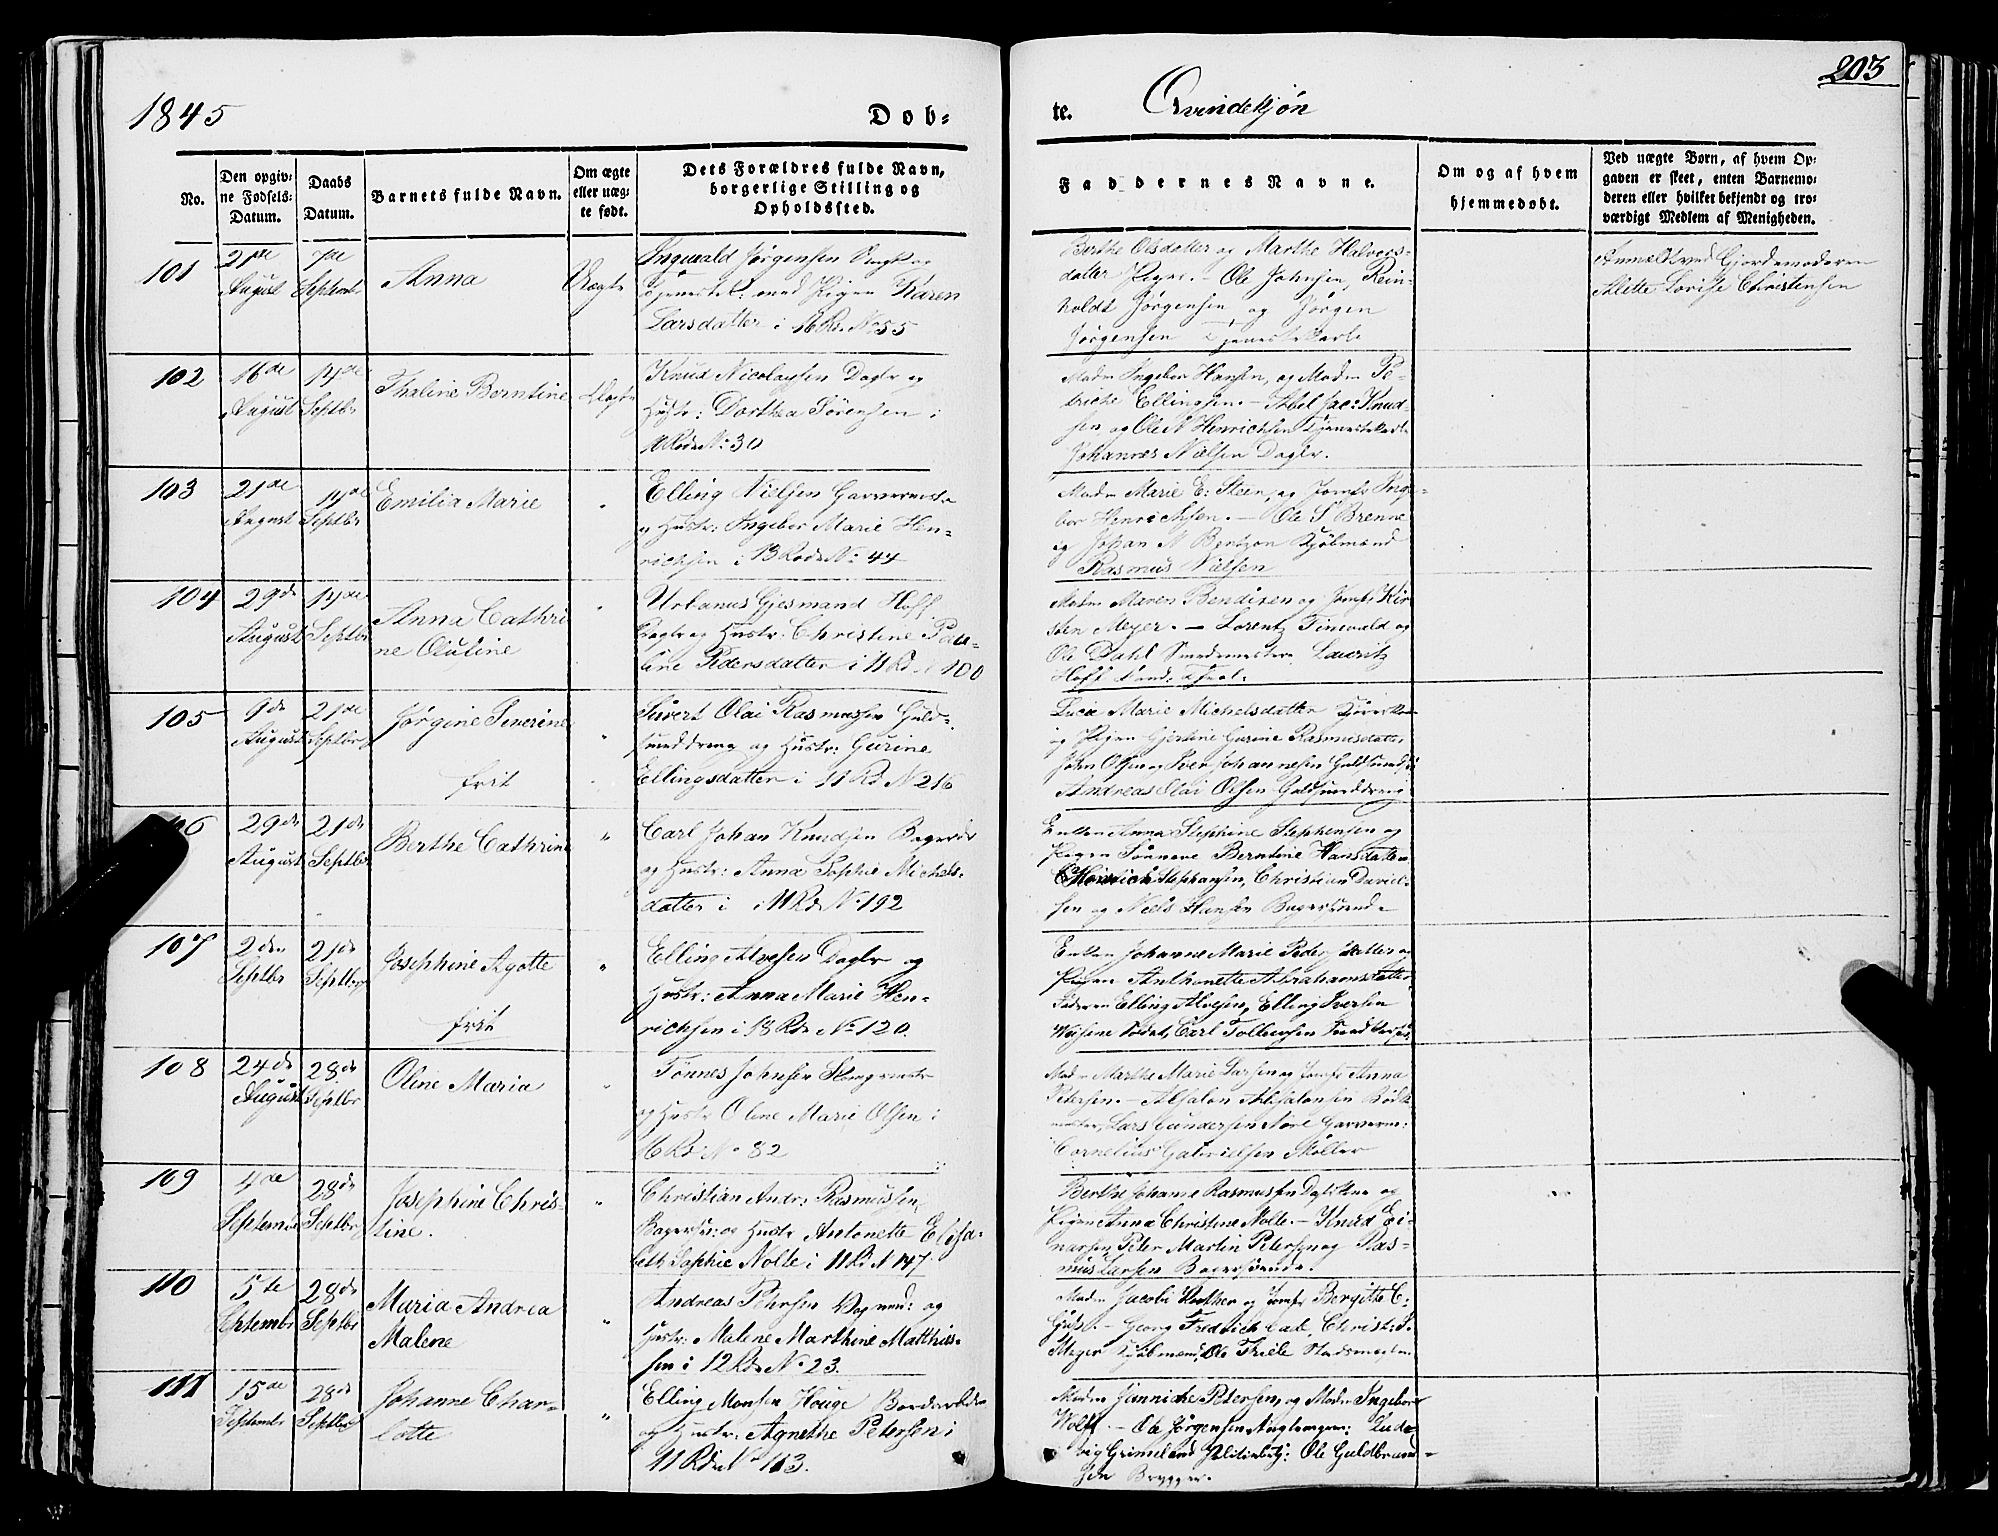 203
1845
Dob-
te. Qvindekjøn
No.
Den opgiv-
ne Fødsels-
Datum.
Daabs
Datum.
Barnets fulde Navn.
Om ægte
eller uæg-
te født.
Dets Forældres fulde Navn,
borgerlige Stilling og
Opholdssted.
Faddernes Navne.
Om og af hvem
hjemmedøbt.
Ved uægte Børn, af hvem Op-
gaven er skeet, enten Barnemo-
deren eller hvilket bekjendt og tro-
værdigt Medlem af Menigheden.
101
21de
August
7de
Septembr
Anna
Uægte
Ingwald Jørgensen
med Pigen Karen
Larsdatter i 16 Rd. No 55
Berthe Olsdatter og Marthe Halvors-
datter Piger. - Ole Johnsen, Rein-
holdt Jørgensen og Jørgen
Jørgensen Tjenestekarle
Anmeldt ved Gjordemoderen
Alette Lovise Christensen
102
16de
August
14de
Septbr
Thaline Berntine
Knud Nicolaysen Daglr og
Hustr: Dorthea Sørensen i
Rode No: 30
Madm Ingebor Hansen, og Madm Pe-
triche Ellingsen. - Abel Jac: Knud-
sen og Ole N Henrichsen Tjenestekarle
Johannes Nielsen Daglr.
103
21de
August
14de
Septbr
Emilia Marie
Elling Nielsen Garverms
og Hustr: Ingebor Marie Hen-
richsen i 13 Rode No: 44
Madm Marie E: Steen, og Jomfr Inge-
bor Henrichsen. - Ole S Brenne
og Johan N Bentzon Kjøbmænd
Rasmus Nielsen
104
29de
August
14de
Septbr
Anna Cathri
ne Olutine
Urbanus Gjesmand Hoff
Daglr og Hustr: Christine Pau-
line Pedersdatter i 11 Rd 100
Madm Maren Bendixen og Jomfr Kir
sten Meyer. - Lorentz Tinwald og
Ole Dahl Smedemestere Lauritz
Hoff
105
9de
August
21de
Septbr
Jørgine Severine
frit
Sivert Olai Rasmussen Guld-
smeddreng og Hustr: Gurine
Ellingsdatter i 11 Rd N 216
Lucia Marie Michelsdatter
og Pigen Gjertine Gurine Rasmusdatter
John Olsen og Iver Johannesen Guldsmedsv
Andreas Olai Olsen Guldsmeddreng
106
29de
August
21de
Septbr
Berthe Cathrine
Carl Johan Knudsen Bagersv
og Hustr: Anna Sophie Michels-
datter i 11 Rd: No 192
Enken Anna Stephine Stephensen og
Pigen Sønneve Berntine Hansdatter
Hinrich Stephansen, Christian David-
sen og Niels Hansen Bagersvende
107
2den
Septbr
21de
Septbr
Josephine Agotte
frit
Elling Alvesen Daglr og
Hustr: Anna Marie Hen-
richsen i 18 Rd: No 120.
Enken Johanne Marie Pedersdatter og
Pigen Anthonette Abrahamsdatter
Faderen Elling Alvesen, Elling Iversen
Carl Tollevsen
108
24de
August
28de
Septbr
Oline Maria
Tønnes Johnsen
og Hustr Olene Marie Olsen i
16 Rd: No 82
Madm Marthe Marie Larsen og Jomfr Anna
Petersen. - Absalon Absalonsen Bødk
mester, Lars Gundersen Nore Garverm:
Cornelius Gabrielsen Møller
109
4de
Septembr
28de
Septbr
Josephine Chris-
tine.
Christian Andr: Rasmussen,
Bagersv: og Hustr Antonette Elisa-
beth Sophie Nolte i 11 Rd N 147.
Berthe Johanne Rasmussen og
Pigen Anna Christine Nolte. - Knud Ei-
narsen, Peter Martin Petersen og Ras-
mus Larsen Bagersvende.
110
5te
Septembr
28de
Septbr
Maria Andrea
Malene
Andreas Petersen Vognmd: og
Hustr: Malene Marthine Matthis-
sen i 12 Rd: No 23.
Madm Jacobi og Jomfr Bergitte C:
Georg Fredrich Christ: S.
Meyer Kjøbmænd, Ole Friele
111
15de
Septembr
28de
Septbr
Johanne Char-
lotte
Elling Monsen Houge Bordarbeider
og Hustr: Agnethe Petersen i
11 Rd: No 113.
Madm Jannicke Petersen, og Madm Ingebor
Wolff. - Ole Jørgensen Lude-
vig Grimelund Politibetj: Ole Guldbrand-
sen Brygger.